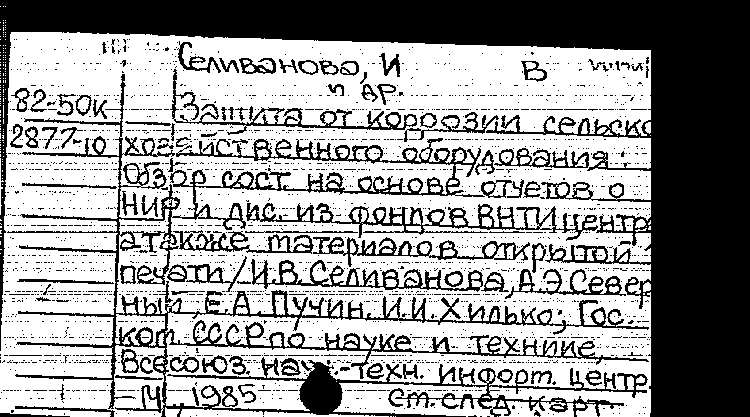 Селиванова, И В
и др.
82-50К Защита от коррозии сельско
2877-10 хозяйственного оборудования:
Обзор сост. на основе отчетов о
НИР и дис. из фондов ВНТИцентра
а также материалов открытой
печати / И.В. Селиванова, А.Э Север
ный, Е.А. Пучин, И.И. Хилько; Гос.
ком. СССР по науке и технике,
Всесоюз. науч.-техн. информ. центр.
- М., 1985 см. след. карт.